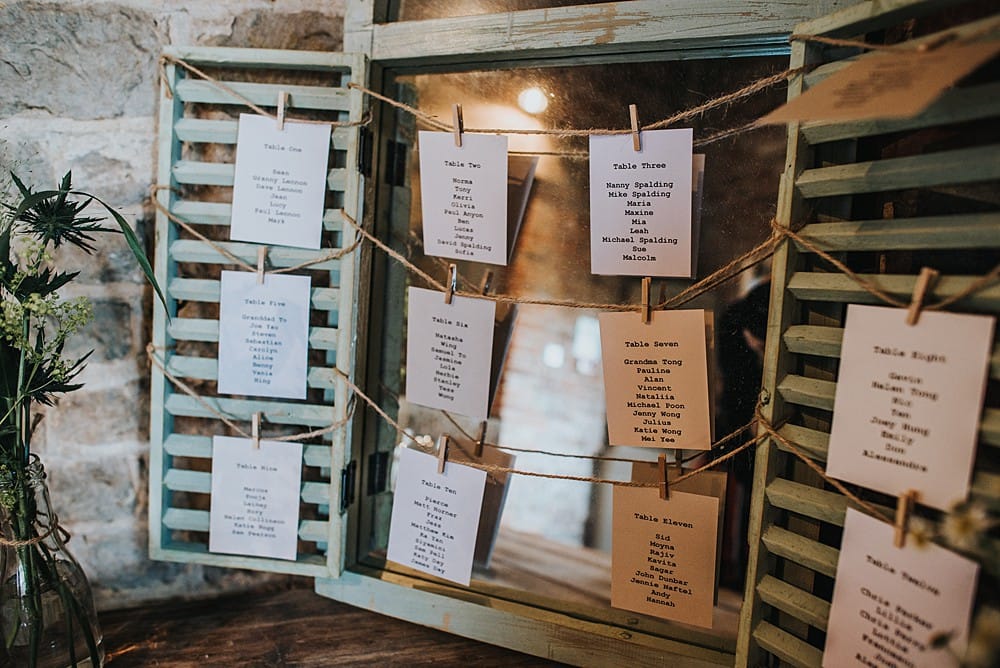 Table One
Sean
Granny Lennon
Dave Lennon
Jean
Lucy
Paul Lennon
Mark
Table Two
Norma
Tony
Kerri
Olivia
Paul Anyon
Ben
Lucas
Jenny
David Spalding
Sofia
Table Three
Nanny Spalding
Mike Spalding
Maria
Maxine
Mia
Leah
Michael Spalding
Sue
Malcolm
Table Five
Granddad To
Joe Yau
Steven
Sebastian
Carolyn
Alice
Benny
Vania
Ming
Table Six
Natasha
Wing
Samuel To
Jasmine
Lola
Herbie
Stanley
Tess
Wong
Table Seven
Grandma Tong
Pauline
Alan
Vincent
Nataliia
Michael Poon
Jenny Wong
Julius
Katie Wong
Mei Yee
Table Eight
Gavin
Helen Tong
Ric
Tan
Joey Hung
Emily
Don
Alessandra
Table Nine
Marcus
Pooja
Lainey
Rory
Helen Collinson
Katie Hogg
Sam Pearson
Table Ten
Pierce
Matt Horner
Fraz
Jess
Matthew Kim
Ka Yan
Siyamini
Sam Pell
Katy Day
James Day
Table Eleven
Sid
Moyna
Rajiv
Kavita
Sagar
John Dunbar
Jennie Haftel
Andy
Hannah
Table Twelve
Chris
Lillie
Chris
Lonnie